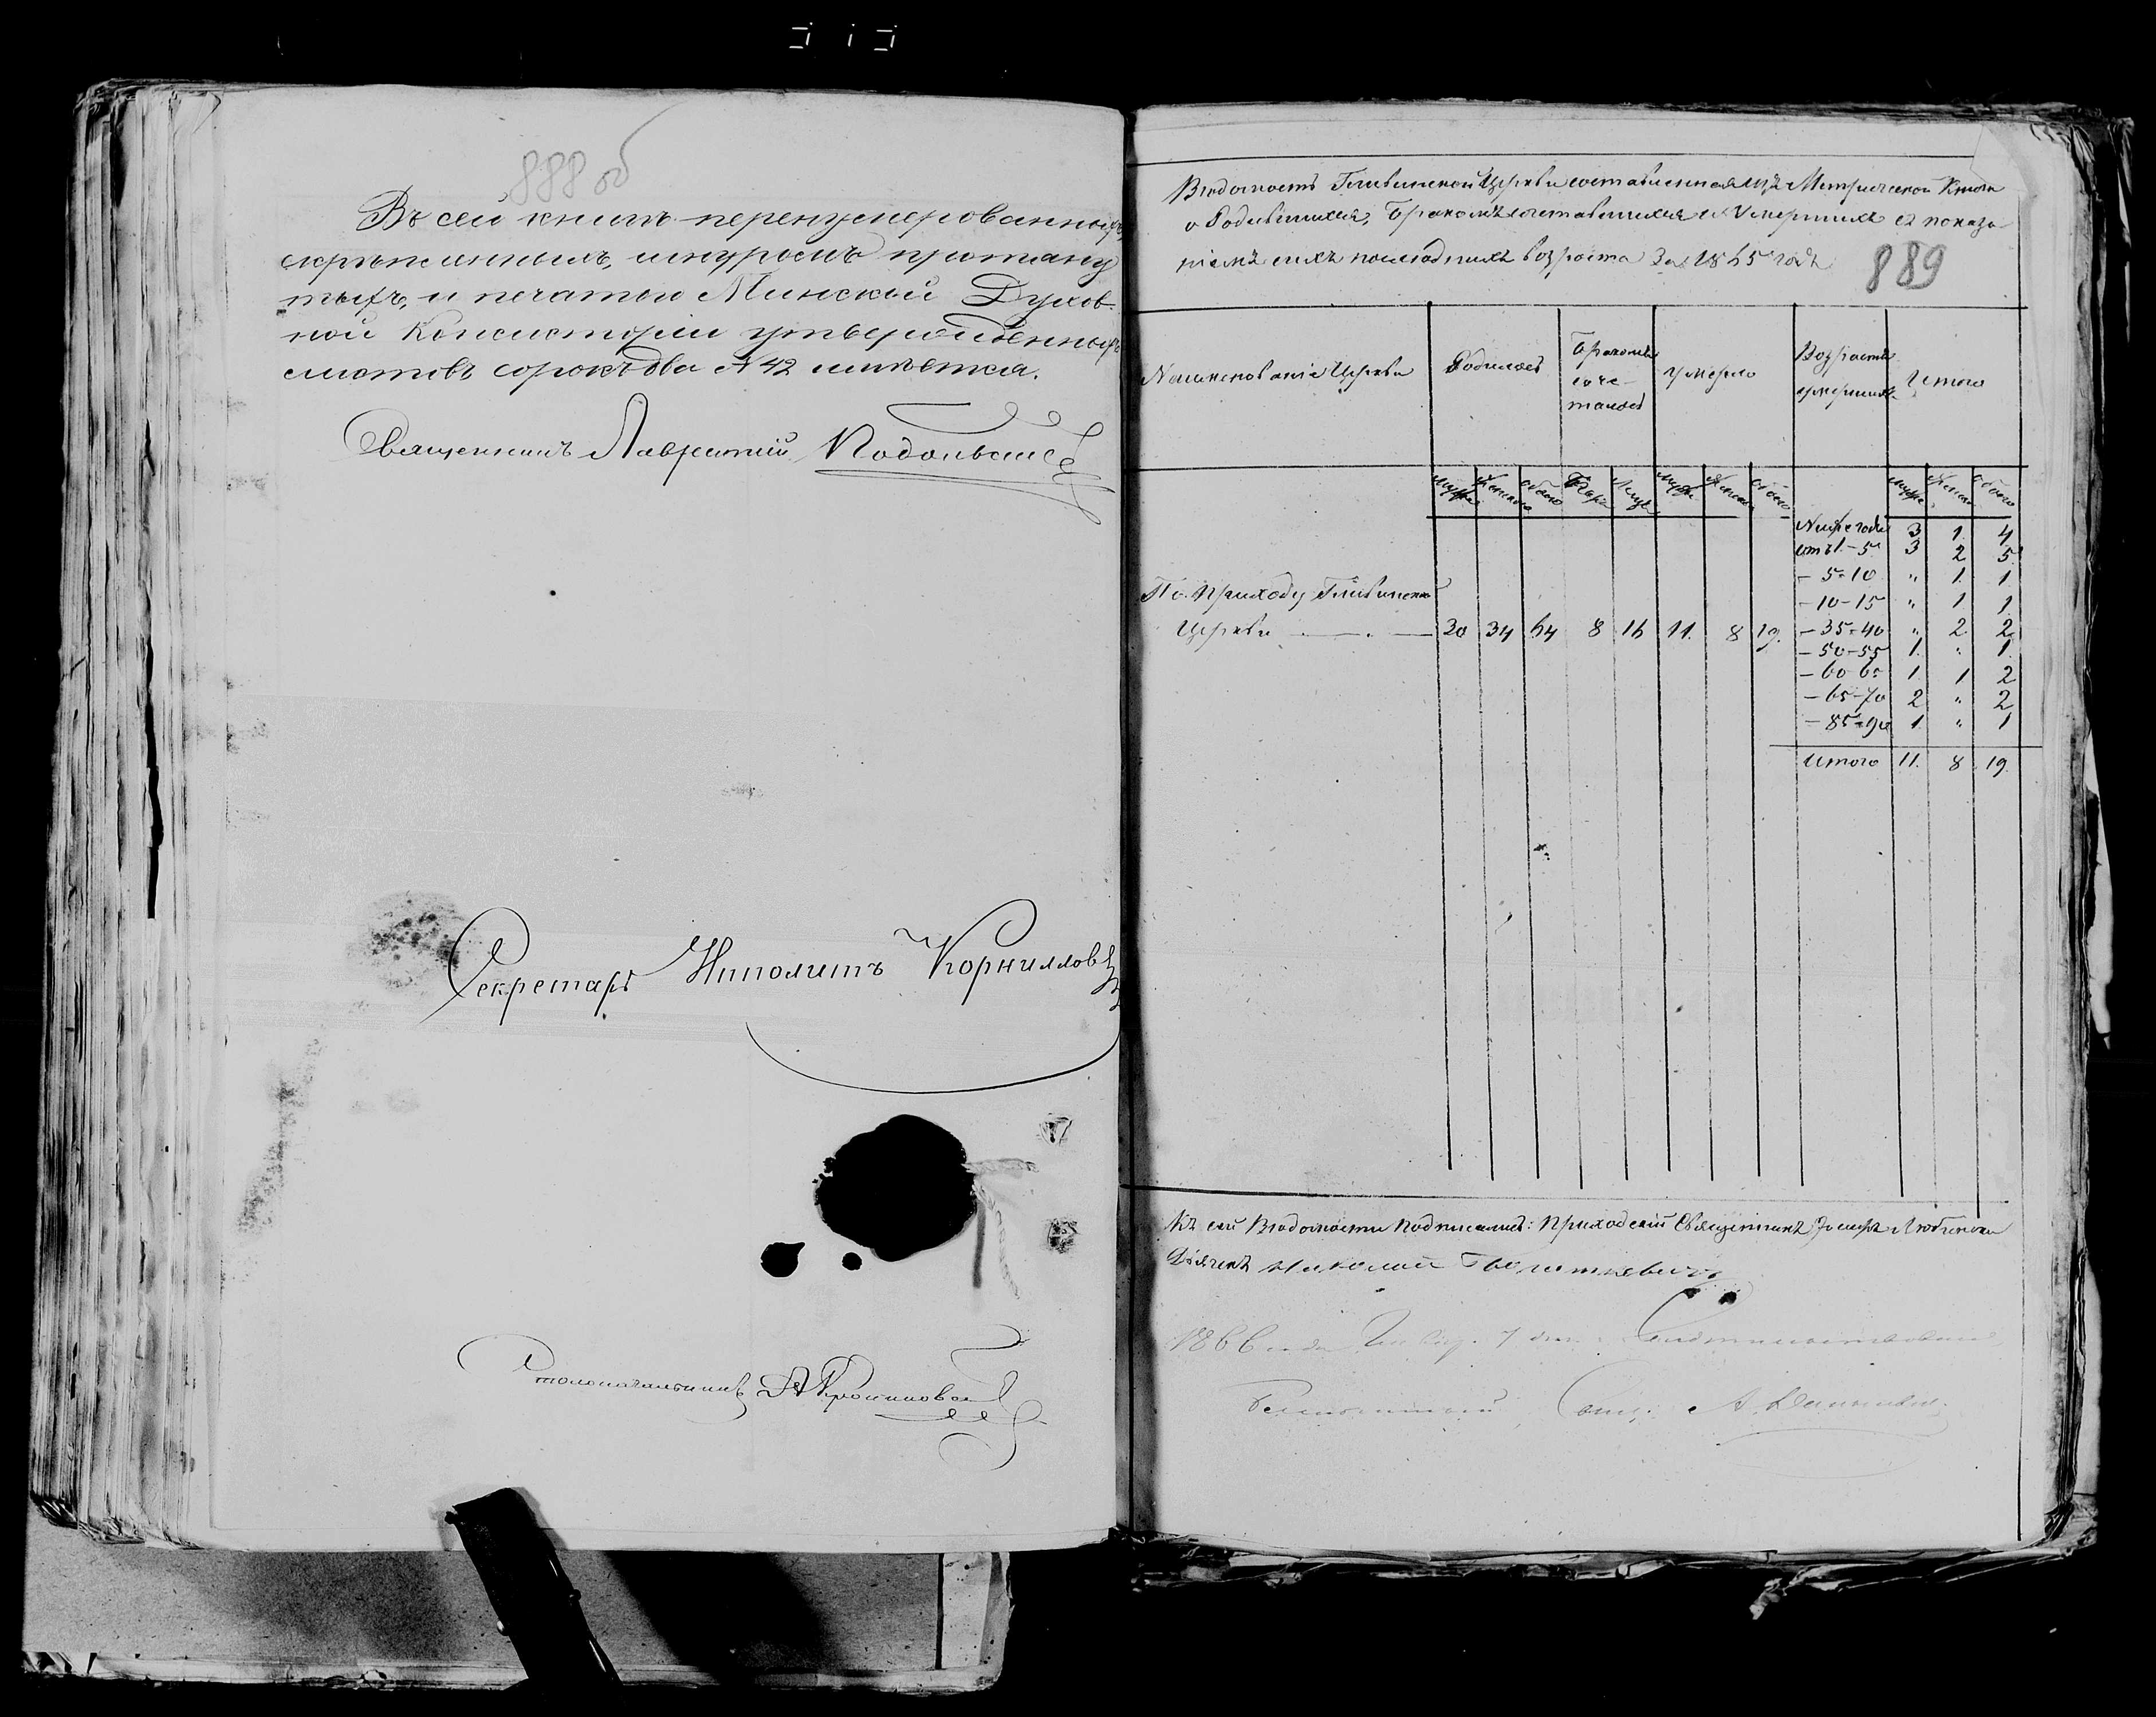 888 об
Въ сей книгѣ перенумерованныхъ,
скрѣпленныхъ, шнуромъ протяну
тыхъ, и печатью Минской Духов-
ной Консисторіи утвержденныхъ
листовъ сорокъ два № 42 имѣется.
Священникъ Лаврентій
Секретарь Иполитъ Корниллов
Столоначальникъ
Вѣдомость Гливинской Церкви составленная изъ Метрической Книги
о Родившихся, Бракомъ сочетавшихся и Умершихъ съ показа-
ніемъ сихъ послѣднихъ возраста За 1865 годъ
889
Наименованіе Церкви Родилось Бракомъ соче- талось умерло Возрастъ умершихъ Итого
муже Женска обоего Паръ Лицъ муже Женска обоего муже Женска обоего
Ниже года 3 1. 4
отъ 1.-5 3 2 5
- 5-10 " 1. 1
- 10-15 " 1 1
По Приходу Гливинской
Церкви 30 34 64 8 16 11. 8 19. - 35-40 " 2. 2
- 50-55 1. " 1
- 60-65 1. 1 2
- 65-70 2 " 2
- 85-90 1. " 1
Итого 11. 8 19.
Къ сей Вѣдомости подписались: Приходскій Священникъ
Дьячекъ Николай
1866 года 7 дня